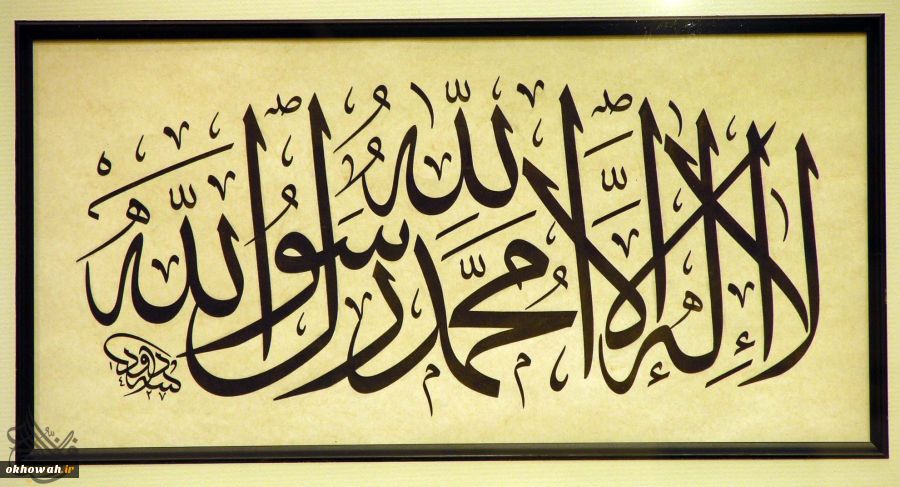 لا إله إلا الله محمد رسول الله
كتبه داود ١٤٢٧
okhowah.ir